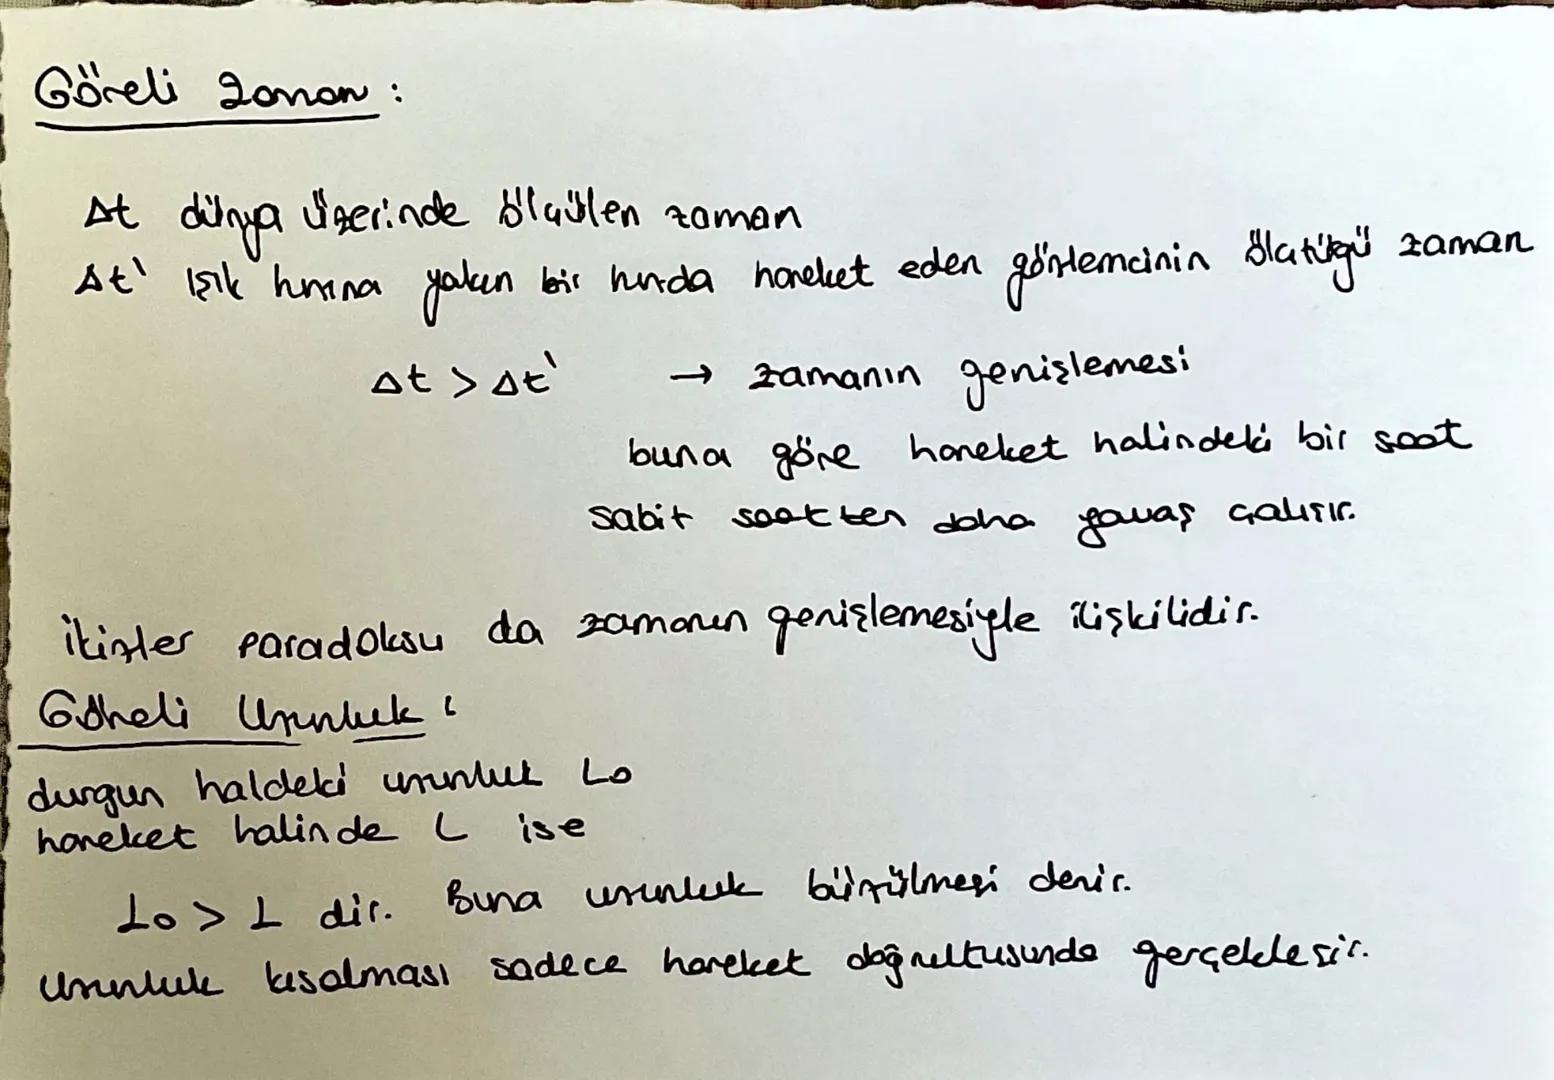 Göreli zaman :
Δt dünya üzerinde ölçülen zaman
Δt' Işık hızına yakın bir hızda hareket eden gözlemcinin ölçtüğü zaman
Δt > Δt' → zamanın genişlemesi
buna göre hareket halindeki bir saat
sabit saatten daha yavaş çalışır.
İkizler paradoksu da zamanın genişlemesiyle ilişkilidir.
Göreli Uzunluk :
durgun haldeki uzunluk Lo
hareket halinde L ise
Lo > L dir. Buna uzunluk büzülmesi denir.
Uzunluk kısalması sadece hareket doğrultusunda gerçekleşir.